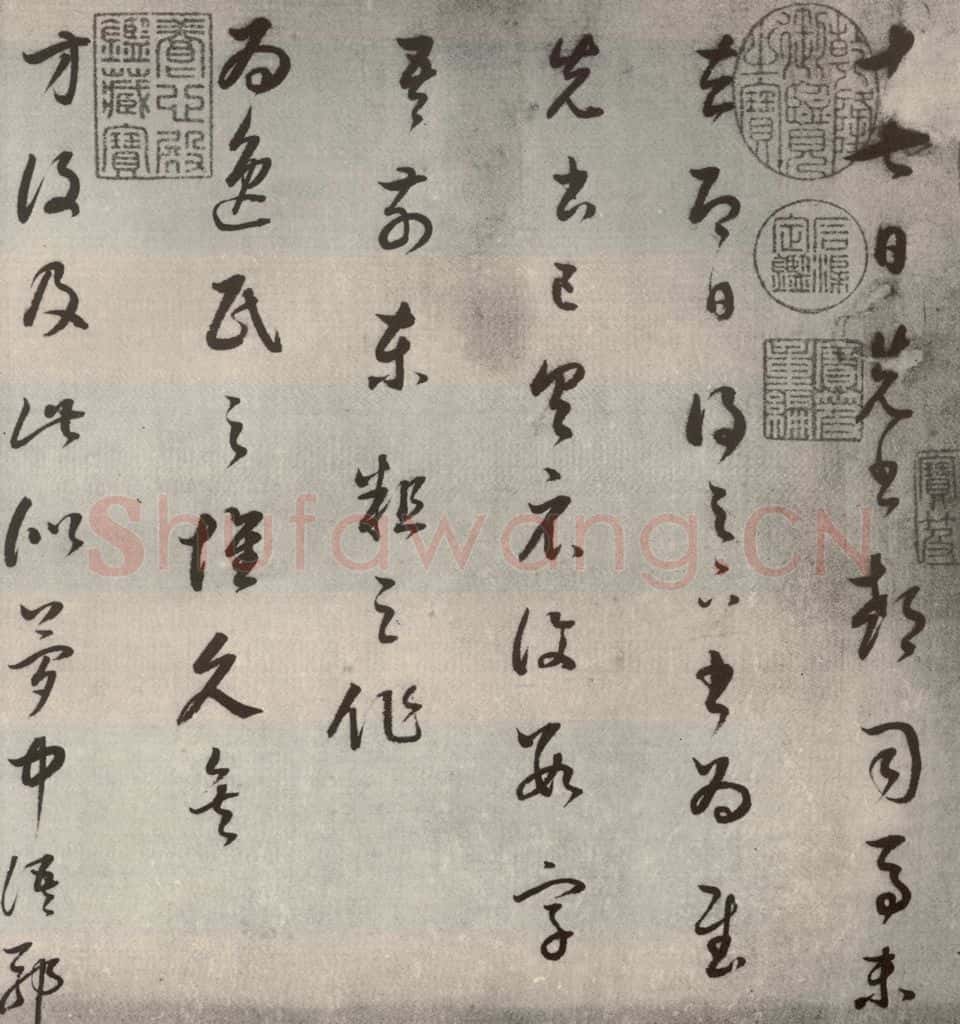 十七日先書郗司馬未
去即日得足下書為慰
先書已具示復數字
吾前東粗足作
為逸民之懷久矣
方復及此似夢中語耶
乾隆御覽之寶
石渠定鑑
寶笈重編
寶笈
養心殿鑑藏寶
Shufawang.CN